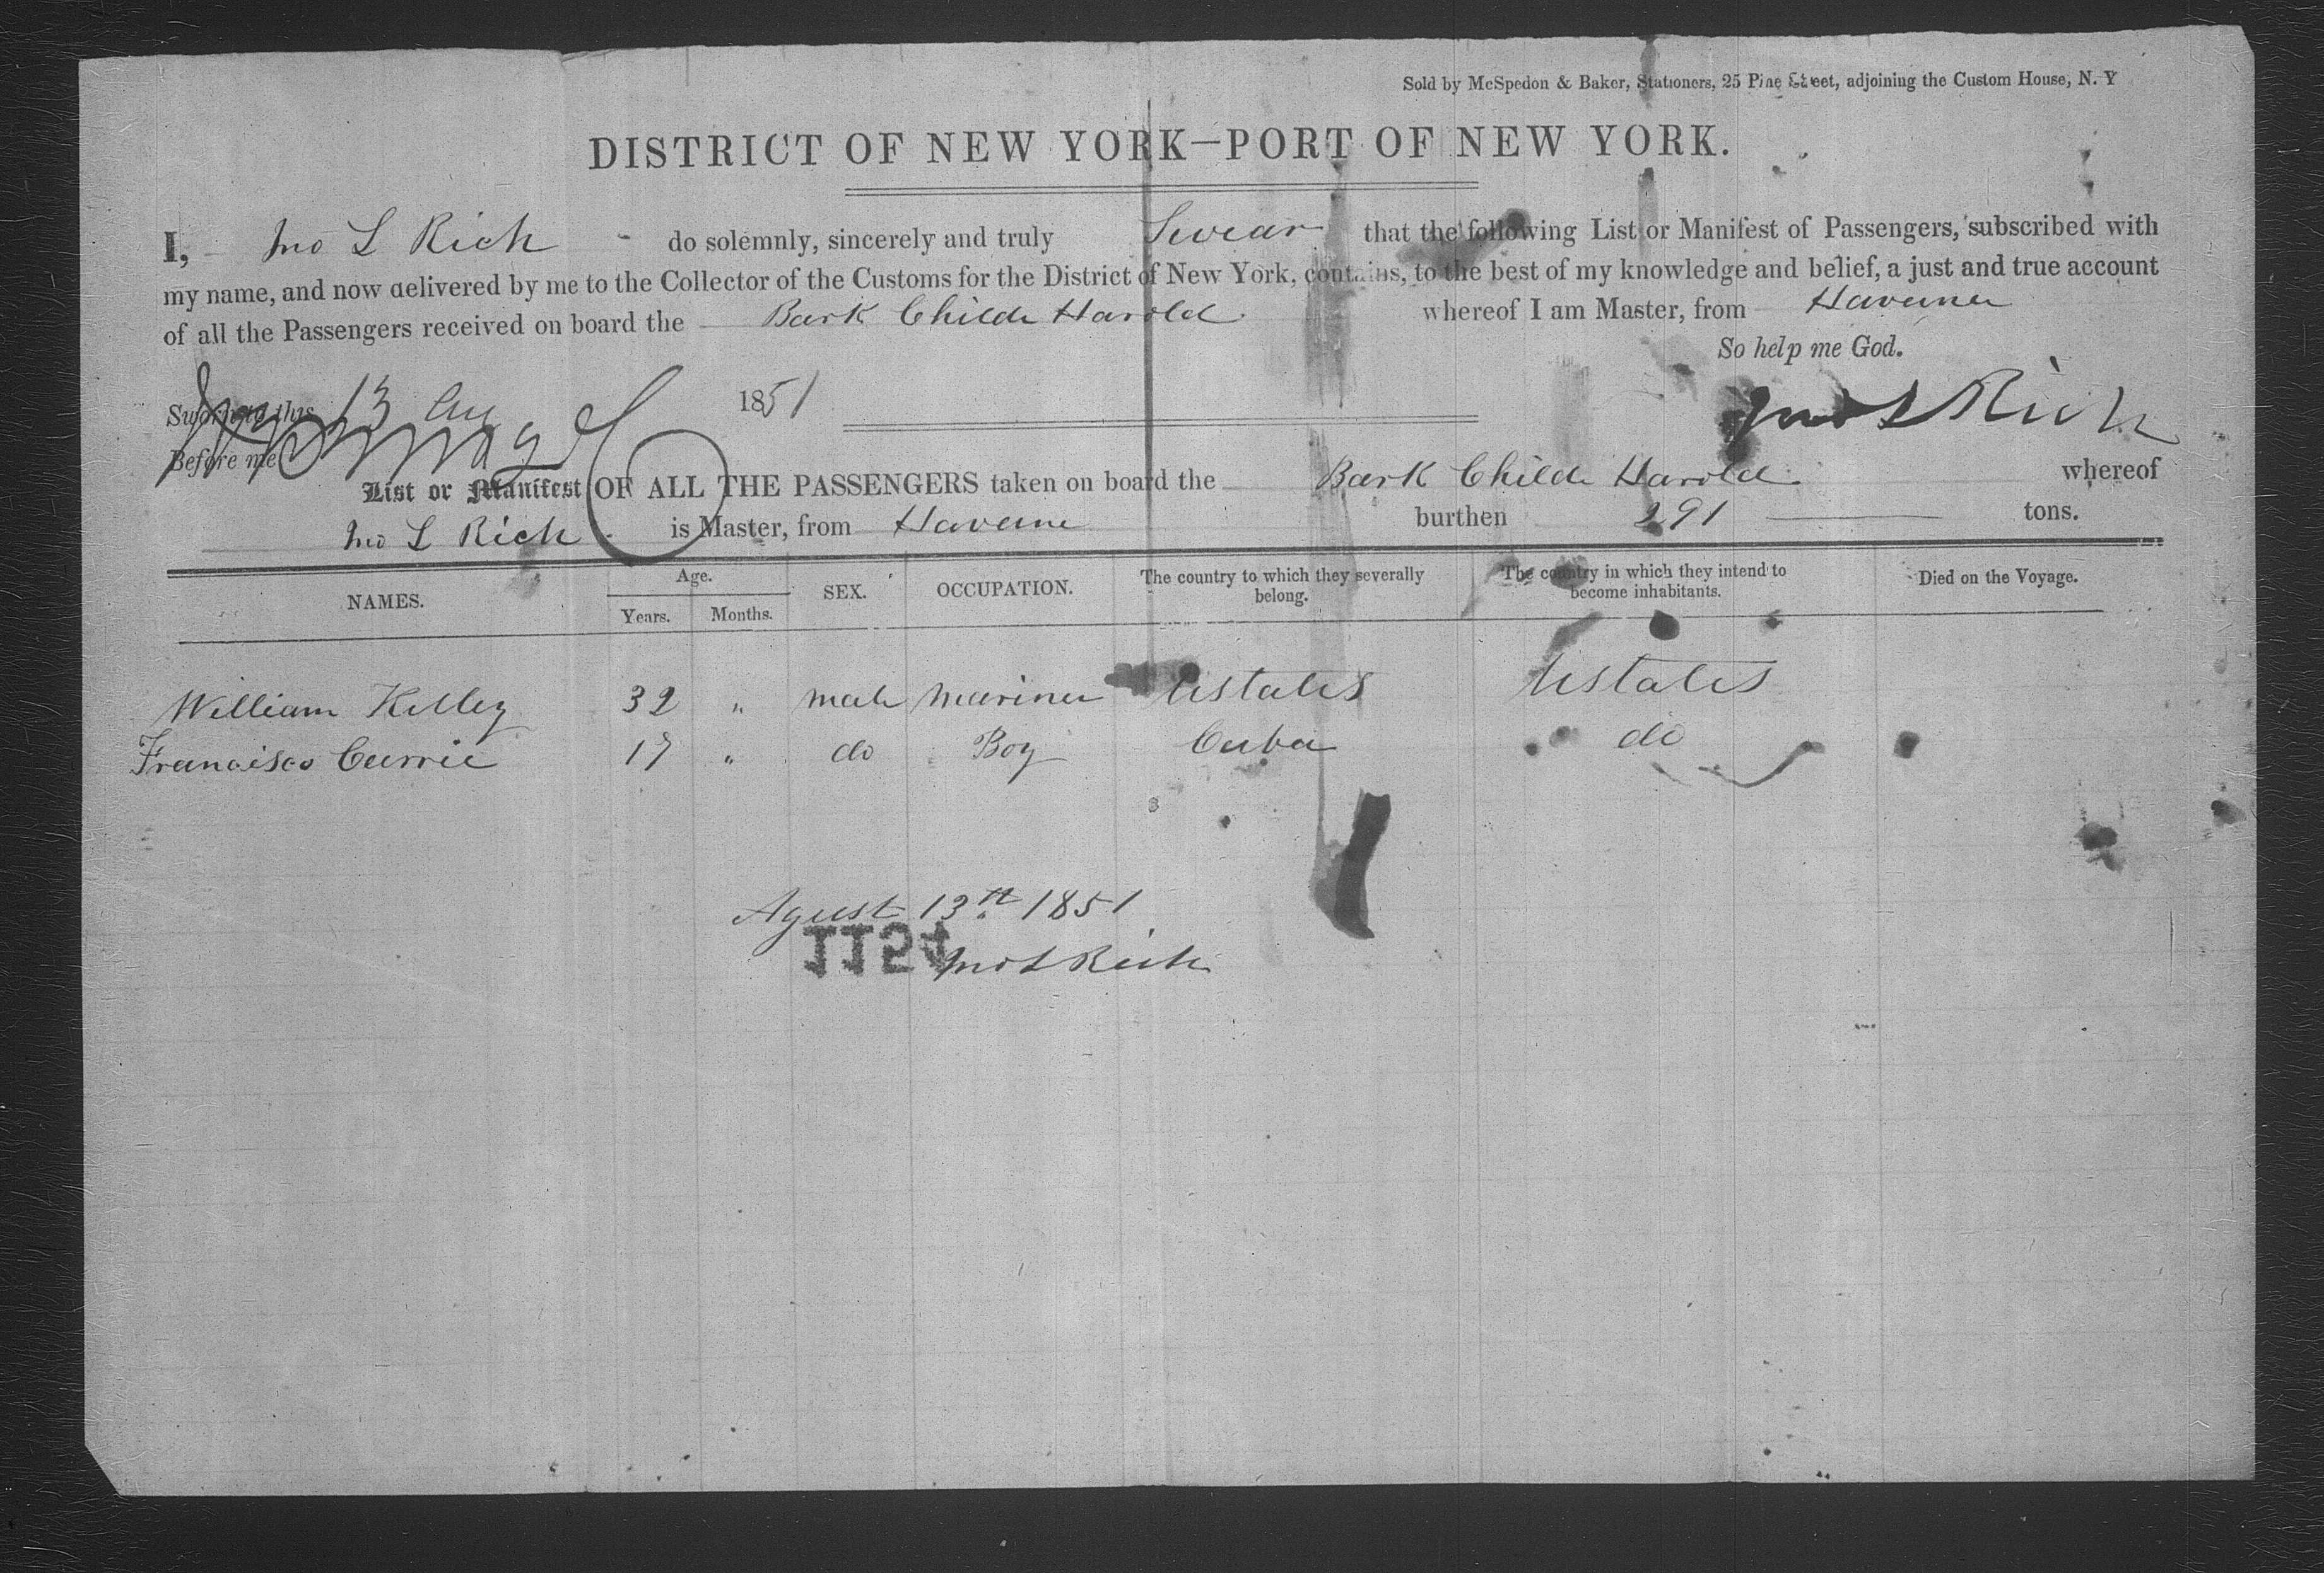 Sold by McSpedon & Baker, Stationers, 25 Pine Street, adjoining the Custom House, N. Y
DISTRICT OF NEW YORK—PORT OF NEW YORK.
I, Jno L Rich do solemnly, sincerely and truly Swear that the following List or Manifest of Passengers, subscribed with
my name, and now delivered by me to the Collector of the Customs for the District of New York, contains, to the best of my knowledge and belief, a just and true account
of all the Passengers received on board the Bark Childe Harold whereof I am Master, from Havana
So help me God.
Sworn to this 13 Aug 1851
Jno L Rich
Before me
List or Manifest OF ALL THE PASSENGERS taken on board the Bark Childe Harold whereof
Jno L Rich is Master, from Havana burthen 291 tons.
NAMES. Age. Years. Months. SEX. OCCUPATION. The country to which they severally belong. The country in which they intend to become inhabitants. Died on the Voyage.
William Kelley 32 " male Mariner Ustates Ustates
Francisco Currie 17 " do Boy Cuba do
Agust 13th 1851
1154
Jno L Rich